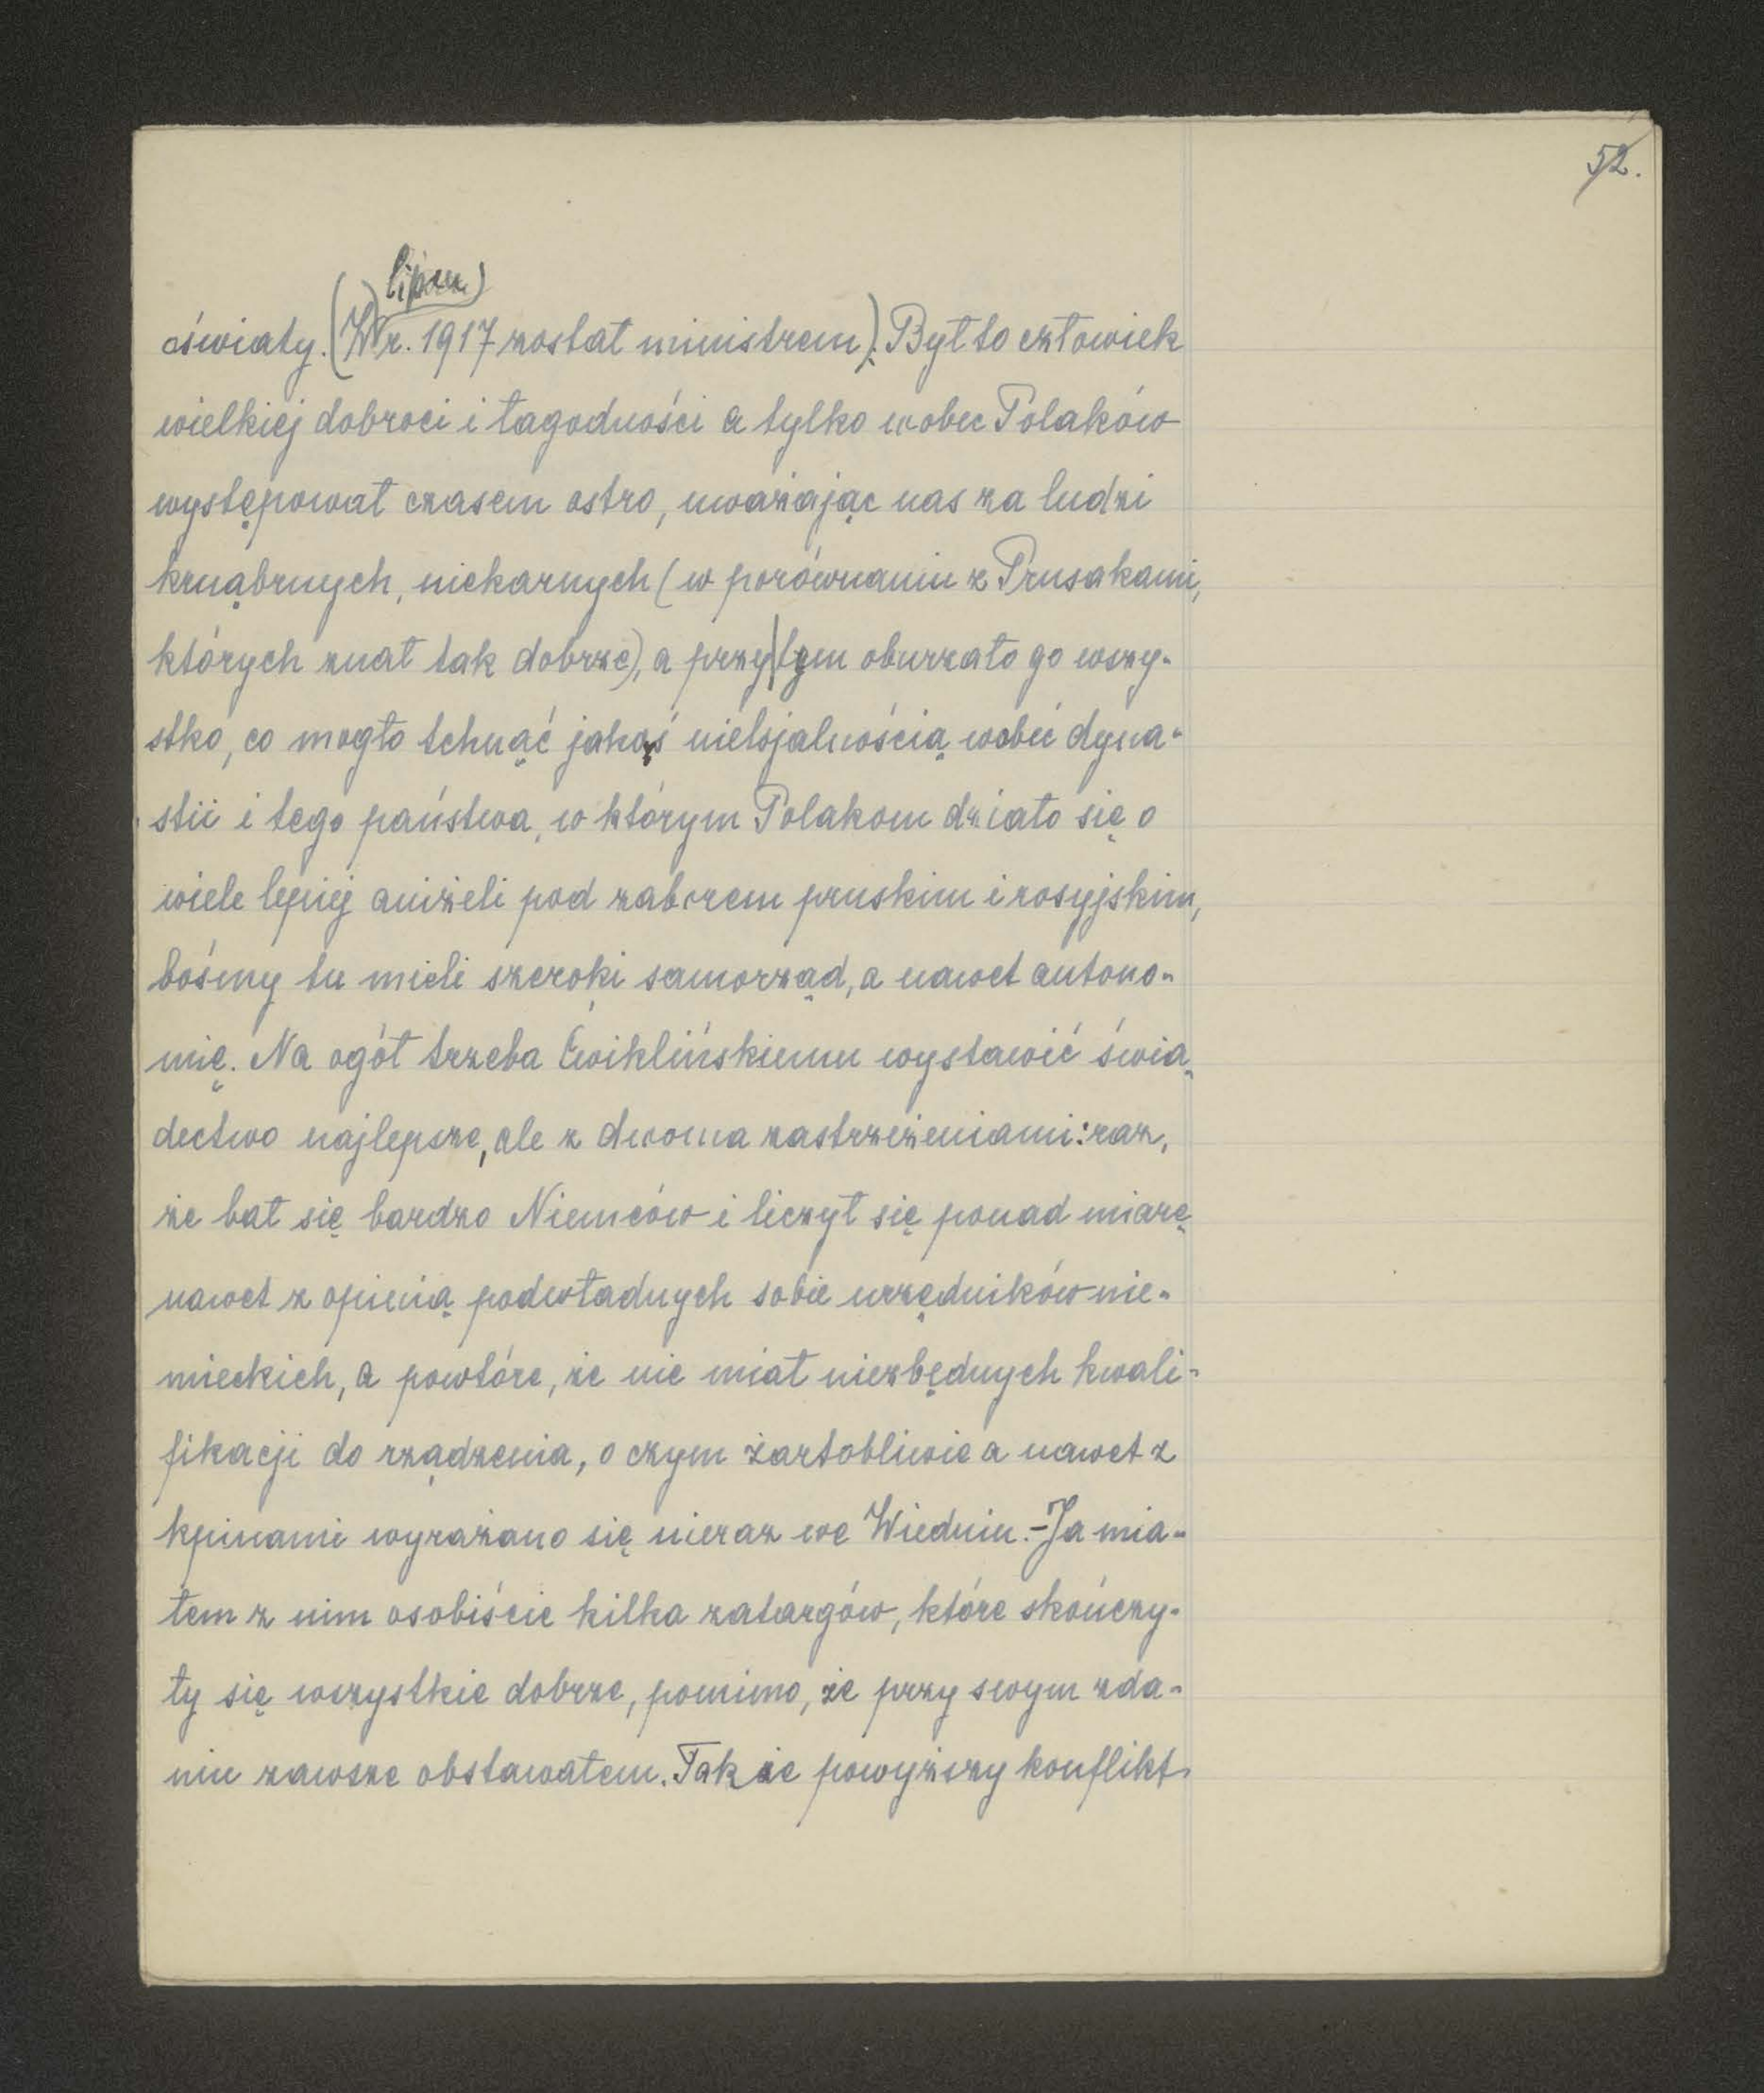 52.
lipcu
oświaty. (W r. 1917 został ministrem). Był to człowiek
wielkiej dobroci i łagodności a tylko wobec Polaków
występował czasem ostro, uważając nas za ludzi
krnąbrnych, niekarnych (w porównaniu z Prusakami,
których znał tak dobrze), a przy|tym oburzało go wszy-
stko, co mogło tchnąć jakąś nielojalnością wobec dyna-
stii i tego państwa, w którym Polakom działo się o
wiele lepiej aniżeli pod zaborem pruskim i rosyjskim,
bośmy tu mieli szeroki samorząd, a nawet autono-
mię. Na ogół trzeba Ćwiklińskiemu wystawić świa-
dectwo najlepsze, ale z dwoma zastrzeżeniami: raz,
że bał się bardzo Niemców i liczył się ponad miarę
nawet z opinią podwładnych sobie urzędników nie-
mieckich, a powtóre, że nie miał niezbędnych kwali-
fikacji do rządzenia, o czym żartobliwie a nawet z
kpinami wyrażano się nieraz we Wiedniu. - Ja mia-
łem z nim osobiście kilka zatargów, które skończy-
ły się wszystkie dobrze, pomimo, że przy swym zda-
niu zawsze obstawałem. Tak że powyższy konflikt